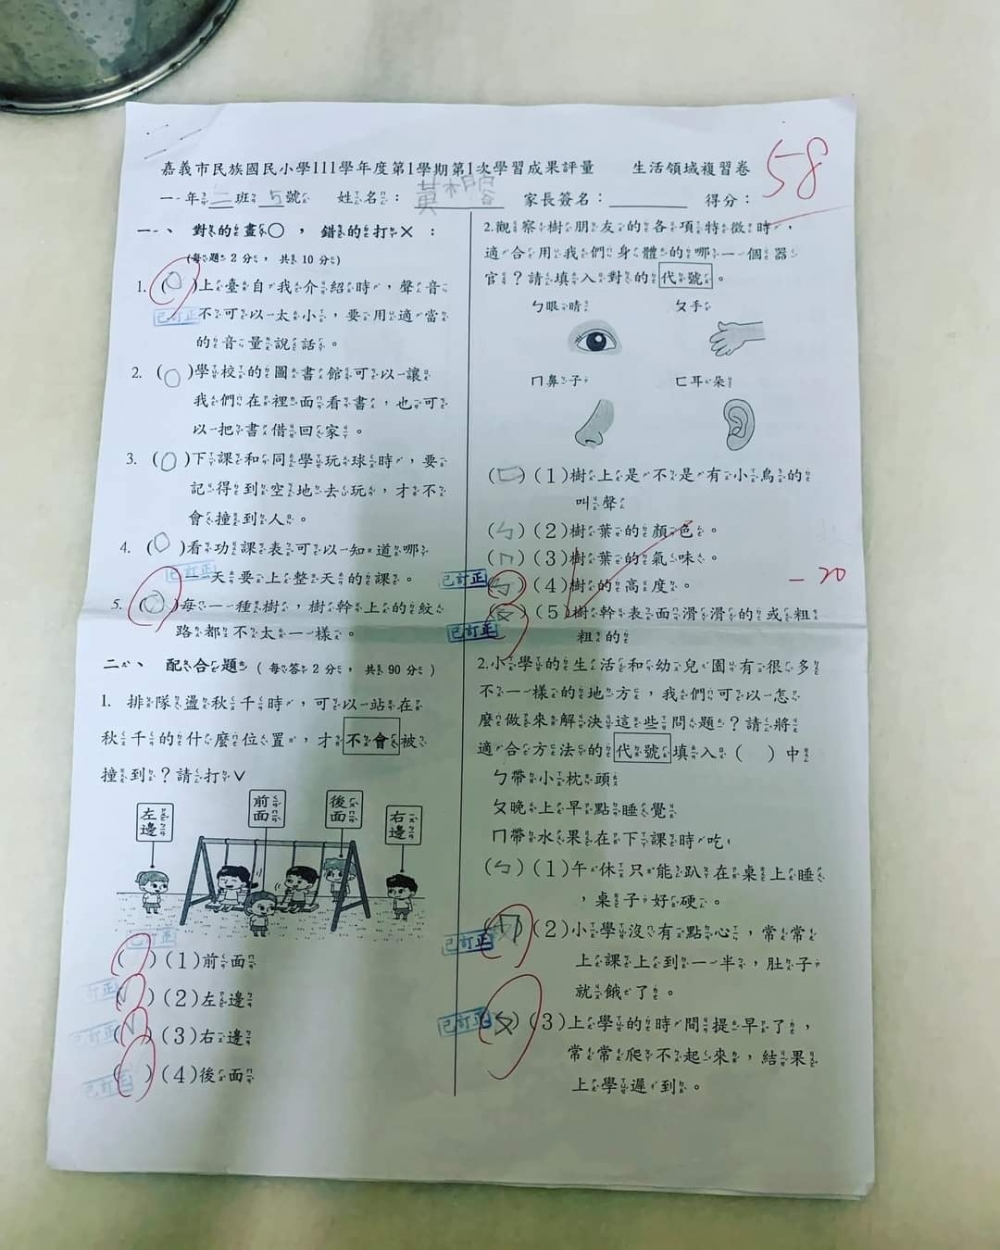 嘉義市民族國民小學111學年度第1學期第1次學習成果評量 生活領域複習卷
58
一年三班5號 姓名： 家長簽名： 得分：
一、 對的畫○，錯的打×：
(每題2分，共10分)
1. (○)上臺自我介紹時，聲音
已訂正 不可以太小，要用適當
的音量說話。
2. (○)學校的圖書館可以讓
我們在裡面看書，也可
以把書借回家。
3. (○)下課和同學玩球時，要
記得到空地去玩，才不
會撞到人。
4. (○)看功課表可以知道哪
已訂正 一天要上整天的課。
5. (○)每一種樹，樹幹上的紋
路都不太一樣。
二、 配合題(每答2分，共90分)
1. 排隊盪秋千時，可以站在
秋千的什麼位置，才不會被
撞到？請打ˇ
左邊 前面 後面 右邊
已訂正
( )(1)前面
訂正 (ˇ)(2)左邊
訂正 (ˇ)(3)右邊
已訂正 ( )(4)後面
2.觀察樹朋友的各項特徵時，
適合用我們身體的哪一個器
官？請填入對的代號。
ㄅ眼睛 ㄆ手
ㄇ鼻子 ㄈ耳朵
(ㄈ)(1)樹上是不是有小鳥的
叫聲
(ㄅ)(2)樹葉的顏色。
(ㄇ)(3)樹葉的氣味。
已訂正 (ㄅ)(4)樹的高度。
-20
(ㄆ)(5)樹幹表面滑滑的或粗
已訂正 粗的
2.小學的生活和幼兒園有很多
不一樣的地方，我們可以怎
麼做來解決這些問題？請將
適合方法的代號填入( )中
ㄅ帶小枕頭
ㄆ晚上早點睡覺
ㄇ帶水果在下課時吃
(ㄅ)(1)午休只能趴在桌上睡
，桌子好硬。
已訂正 (ㄇ)(2)小學沒有點心，常常
上課上到一半，肚子
就餓了。
已訂正 (ㄆ)(3)上學的時間提早了，
常常爬不起來，結果
上學遲到。